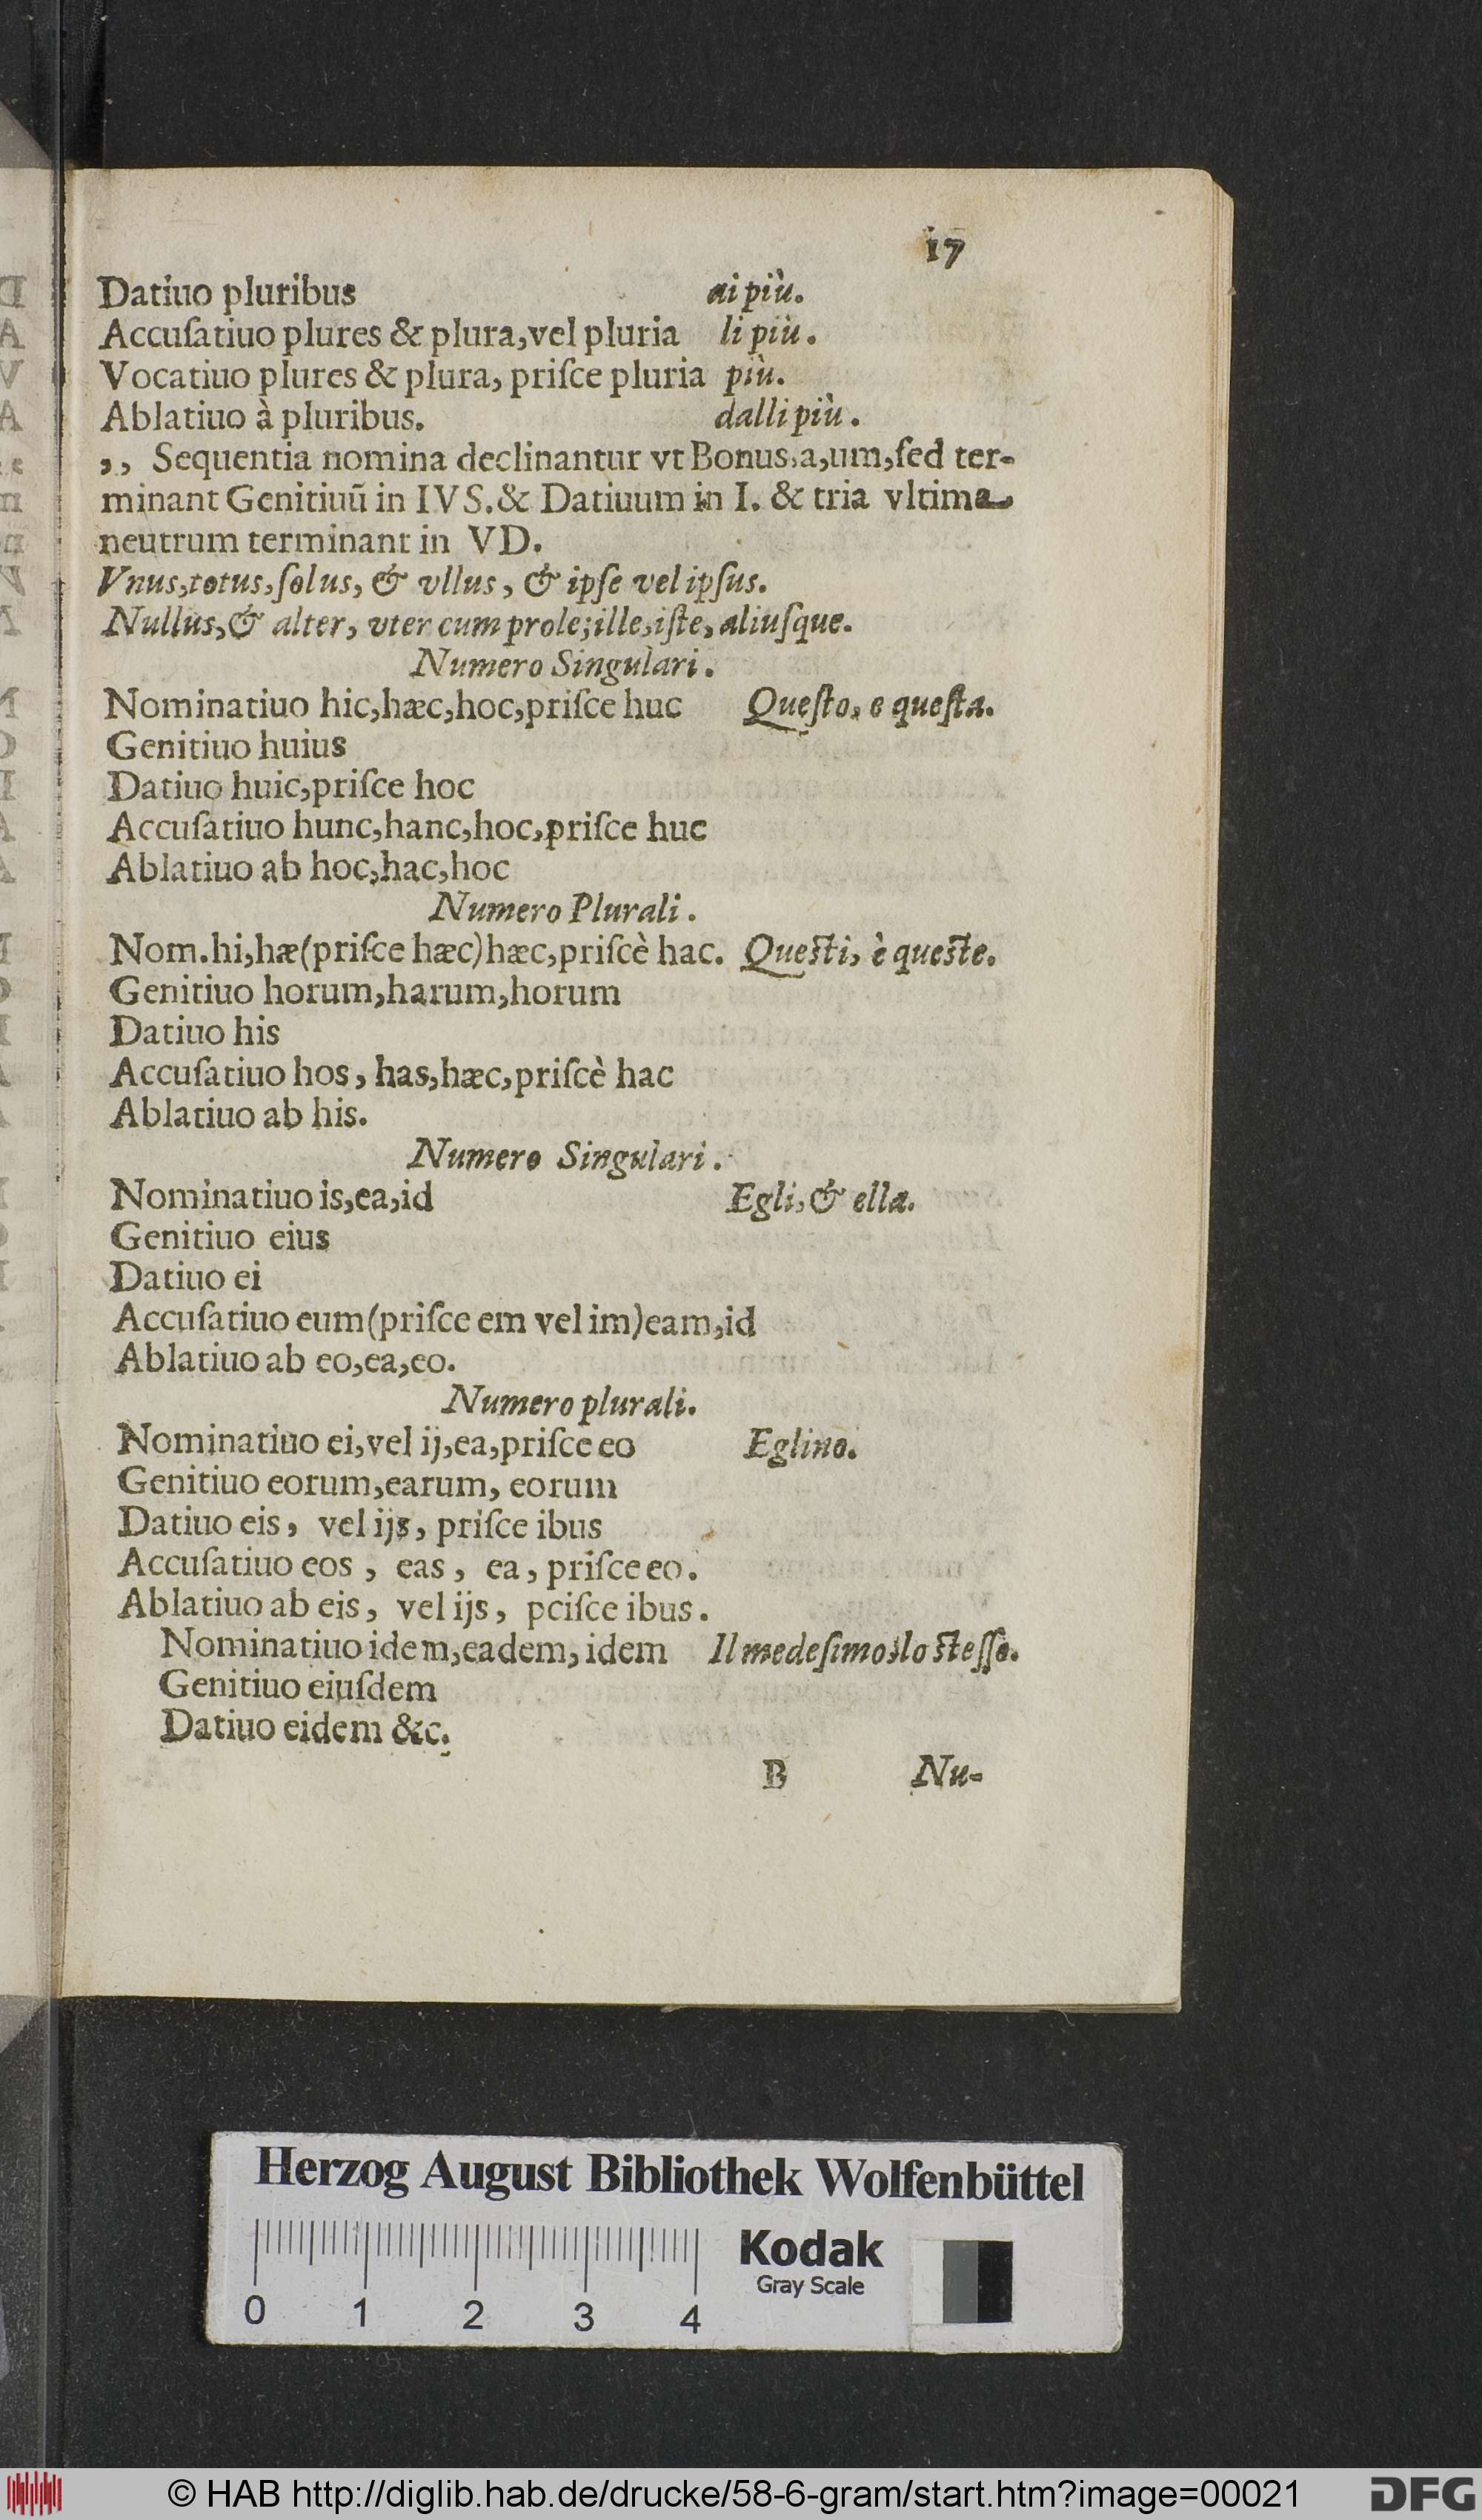 17
Datiuo pluribus ai più.
Accuſatiuo plures & plura,vel pluria li più.
Vocatiuo plures & plura, priſce pluria più.
Ablatiuo à pluribus. dalli più.
,, Sequentia nomina declinantur vt Bonus,a,um,ſed ter-
minant Genitiuũ in IVS.& Datiuum in I. & tria vltima
neutrum terminant in VD.
Vnus,totus,ſolus, & vllus, & ipſe vel ipſus.
Nullus,& alter, vter cum prole;ille,iſte, aliuſque.
Numero Singulari.
Nominatiuo hic,hæc,hoc,priſce huc Queſto, e queſta.
Genitiuo huius
Datiuo huic,priſce hoc
Accuſatiuo hunc,hanc,hoc,priſce huc
Ablatiuo ab hoc,hac,hoc
Numero Plurali.
Nom.hi,hæ(priſce hæc)hæc,priſcè hac. Queſti, è queſte.
Genitiuo horum,harum,horum
Datiuo his
Accuſatiuo hos, has,hæc,priſcè hac
Ablatiuo ab his.
Numero Singulari.
Nominatiuo is,ea,id Egli,& ella.
Genitiuo eius
Datiuo ei
Accuſatiuo eum(priſce em vel im)eam,id
Ablatiuo ab eo,ea,eo.
Numero plurali.
Nominatiuo ei,vel ij,ea,priſce eo Eglino.
Genitiuo eorum,earum, eorum
Datiuo eis, vel ijs, priſce ibus
Accuſatiuo eos, eas, ea, priſce eo.
Ablatiuo ab eis, vel ijs, pciſce ibus.
Nominatiuo idem,eadem, idem Il medeſimo,lo ſteſſo.
Genitiuo eiuſdem
Datiuo eidem &c.
B Nu-
Herzog August Bibliothek Wolfenbüttel
Kodak
Gray Scale
0 1 2 3 4
© HAB http://diglib.hab.de/drucke/58-6-gram/start.htm?image=00021 DFG